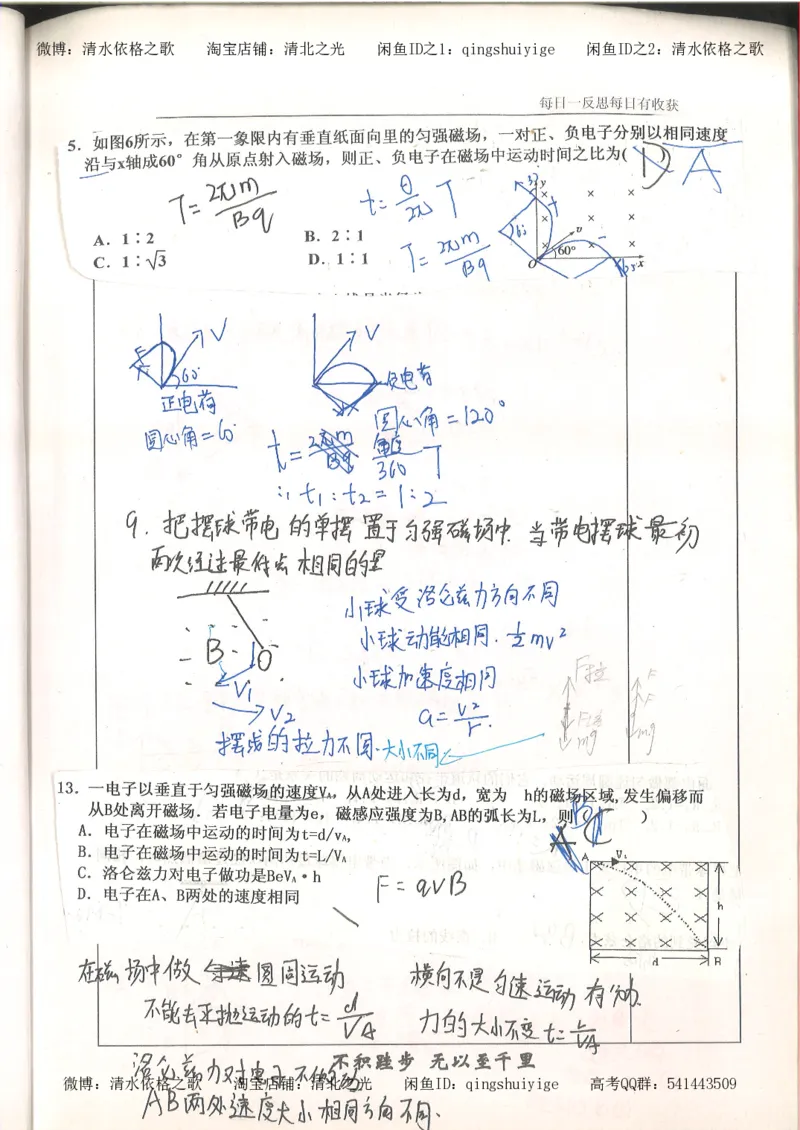 微博：清水依格之歌 淘宝店铺：清北之光 闲鱼ID之1：qingshuiyige 闲鱼ID之2：清水依格之歌
每日一反思每日有收获
5．如图6所示，在第一象限内有垂直纸面向里的匀强磁场，一对正、负电子分别以相同速度
沿与x轴成60°角从原点射入磁场，则正、负电子在磁场中运动时间之比为( D ) A
T=2πm/Bq t=θ/2π T
A．1∶2 B．2∶1
C．1∶√3 D．1∶1
T=2πm/Bq
y
v
60°
O x
V
60°
正电荷
圆心角=60°
V
负电荷
圆心角=120°
t= 角度/360 T
∴ t₁:t₂=1:2
9. 把摆球带电的单摆置于匀强磁场中 当带电摆球最初
两次经过最低点 相同的是
小球受洛仑兹力方向不同
小球动能相同. ½mv²
小球加速度相同
a=v²/r.
B
V₁
V₂
F拉
F洛
mg
F
F
mg
摆线的拉力不同.大小不同
13．一电子以垂直于匀强磁场的速度VA，从A处进入长为d，宽为 h的磁场区域，发生偏移而
从B处离开磁场．若电子电量为e，磁感应强度为B,AB的弧长为L，则( )
A．电子在磁场中运动的时间为t=d/vA，
B．电子在磁场中运动的时间为t=L/VA
C．洛仑兹力对电子做功是BeVA·h
D．电子在A、B两处的速度相同
F=qvB
A
h
d
B
在磁场中做 圆周运动
横向不是匀速运动 有分力.
不能去平抛运动的t=d/VA
力的大小不变 t=L/VA
不积跬步 无以至千里
洛仑兹力对电子不做功
微博：清水依格之歌 淘宝店铺：清北之光 闲鱼ID：qingshuiyige 高考QQ群：541443509
AB两处速度大小相同方向不同.